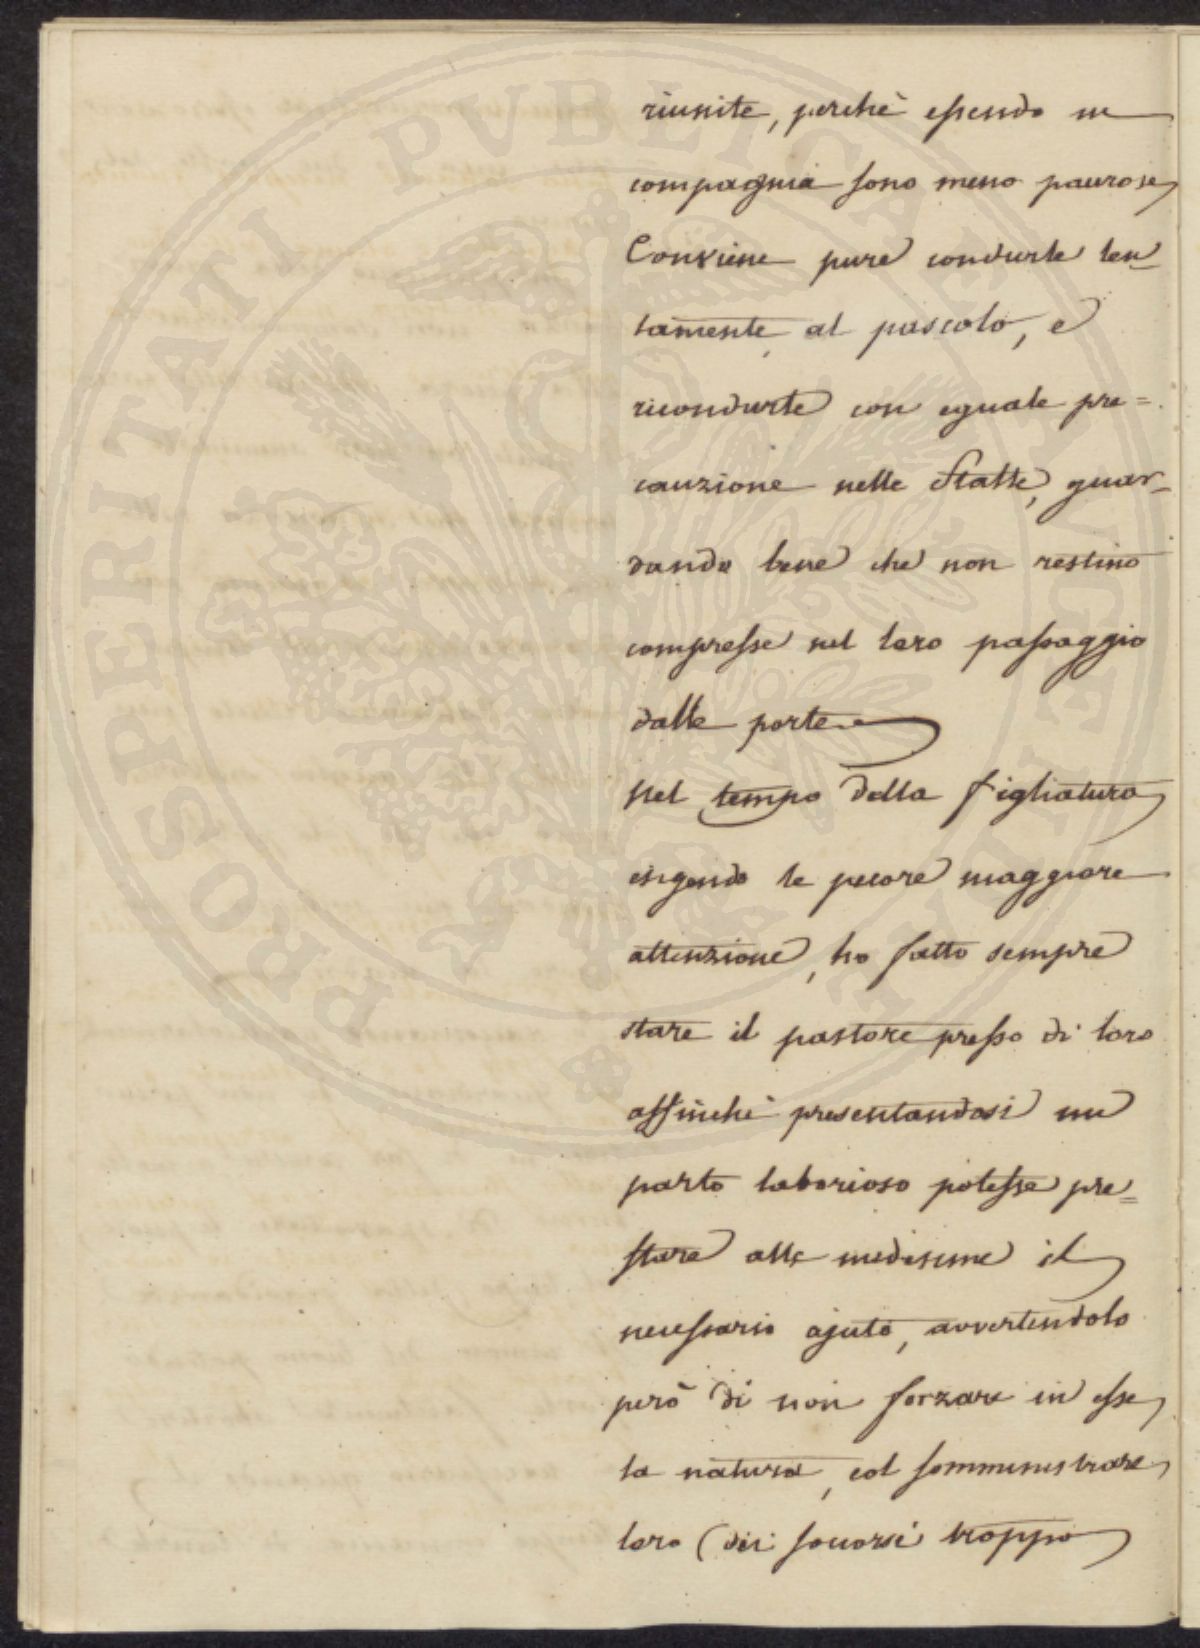 riunite, perchè essendo in
compagnia sono meno paurose,
Conviene pure condurle len-
tamente al pascolo, e
ricondurle con eguale pre=
cauzione nelle Stalle, guar-
dando bene che non restino
compresse nel loro passaggio
dalle porte.
Nel tempo della figliatura
esigendo le pecore maggiore
attenzione, ho fatto sempre
stare il pastore presso di loro
affinchè presentandosi un
parto laborioso potesse pre=
stare alle medesime il
necessario ajuto, avvertendolo
però di non forzare in esse
la natura, col somministrare
loro dei soccorsi troppo
PROSPERITATI PUBLICAE AUGENDAE